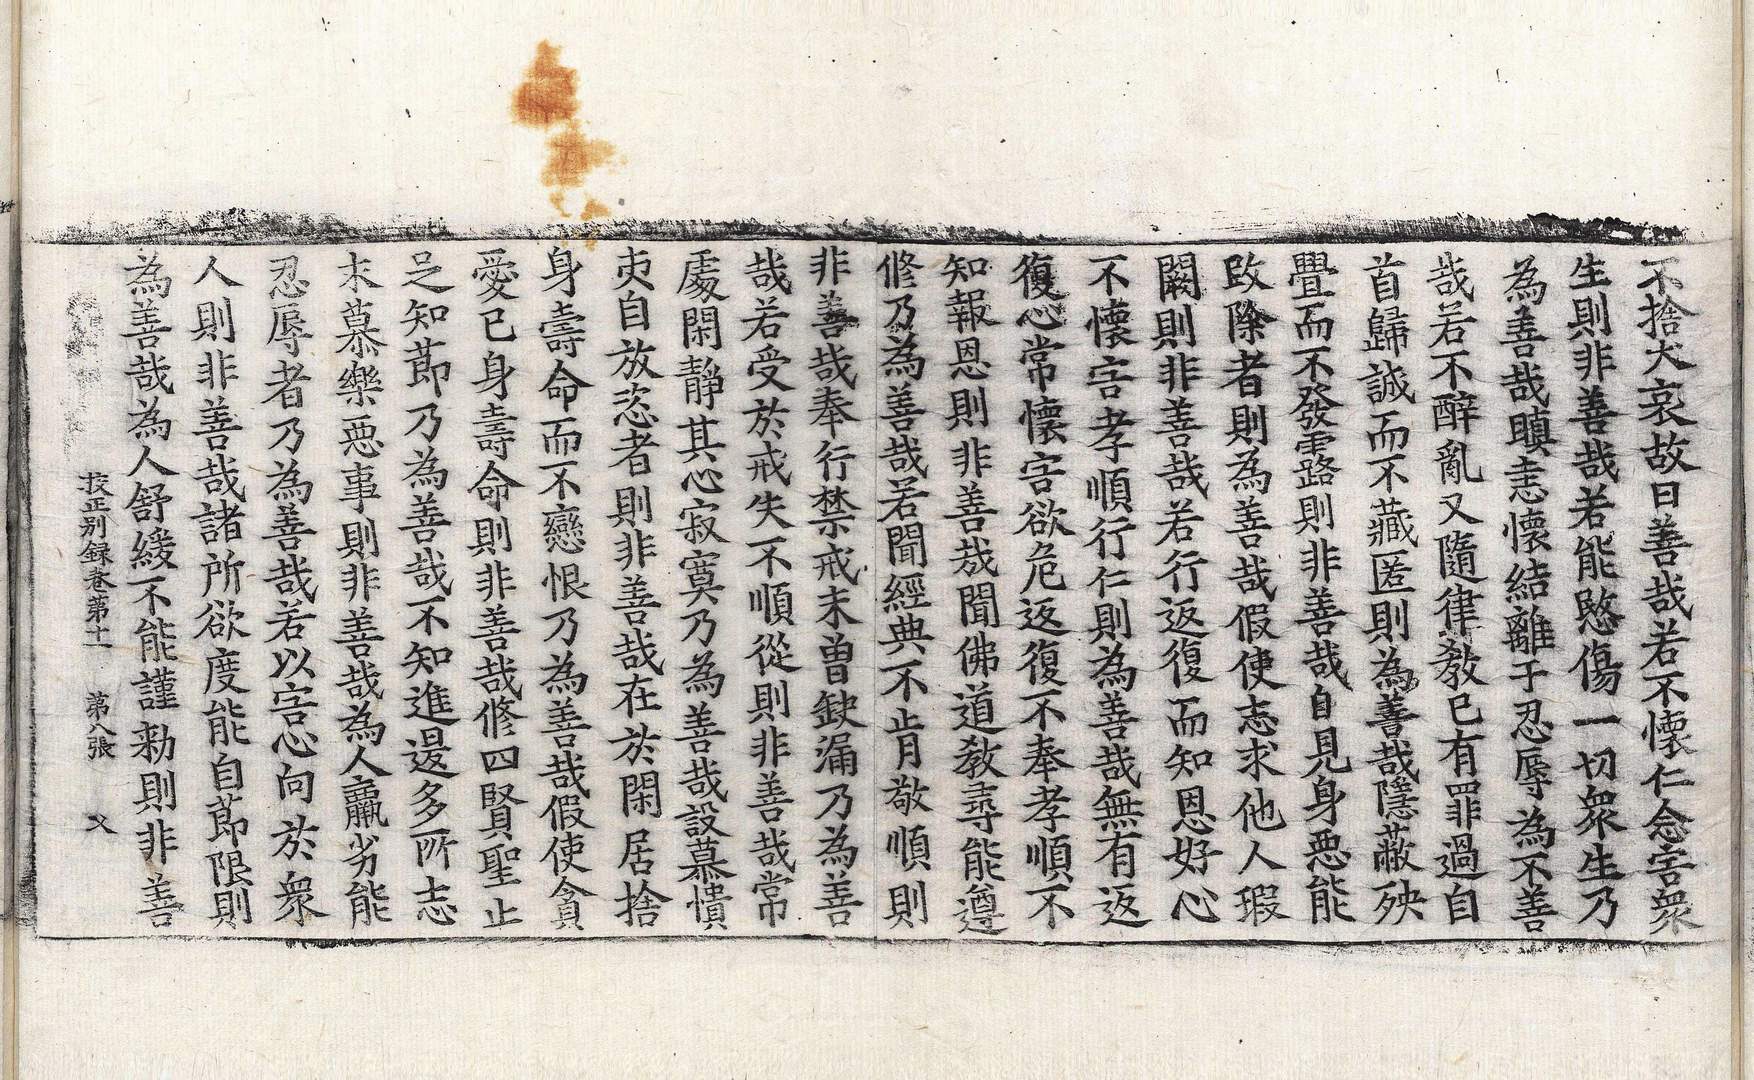 不捨大哀故曰善哉若不懷仁念害衆
生則非善哉若能愍傷一切衆生乃
為善哉瞋恚懷結離于忍辱為不善
哉若不醉亂又隨律教已有罪過自
首歸誠而不藏匿則為善哉隱蔽殃
疊而不發露路則非善哉自見身惡能
改除者則為善哉假使志求他人瑕
闕則非善哉若行返復而知恩好心
不懷害孝順行仁則為善哉無有返
復心常懷害欲危返復不奉孝順不
知報恩則非善哉聞佛道教尋能遵
修乃為善哉若聞經典不肯敬順則
非善哉奉行禁戒未曾缺漏乃為善
哉若受於戒失不順從則非善哉常
處閑靜其心寂寞乃為善哉設慕憒
夷自放恣者則非善哉在於閑居捨
身壽命而不戀恨乃為善哉假使貪
愛已身壽命則非善哉修四賢聖止
足知節乃為善哉不知進退多所志
末慕樂惡事則非善哉為人羸劣能
忍辱者乃為善哉若以害心向於衆
人則非善哉諸所欲度能自節限則
為善哉為人舒緩不能謹勑則非善
校正別録卷第十一 第八張